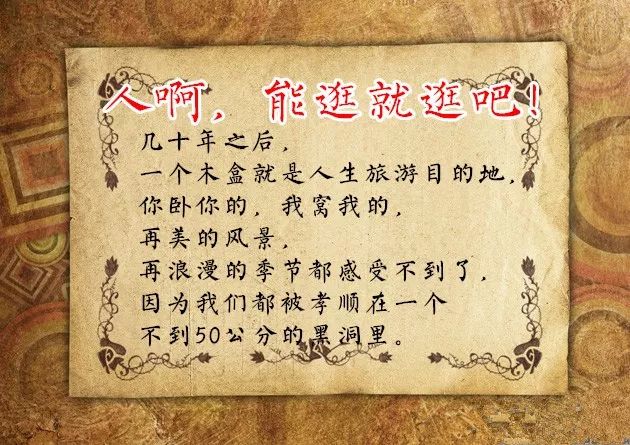 人啊，能逛就逛吧！
几十年之后，
一个木盒就是人生旅游目的地，
你卧你的，我窝我的，
再美的风景，
再浪漫的季节都感受不到了，
因为我们都被孝顺在一个
不到50公分的黑洞里。